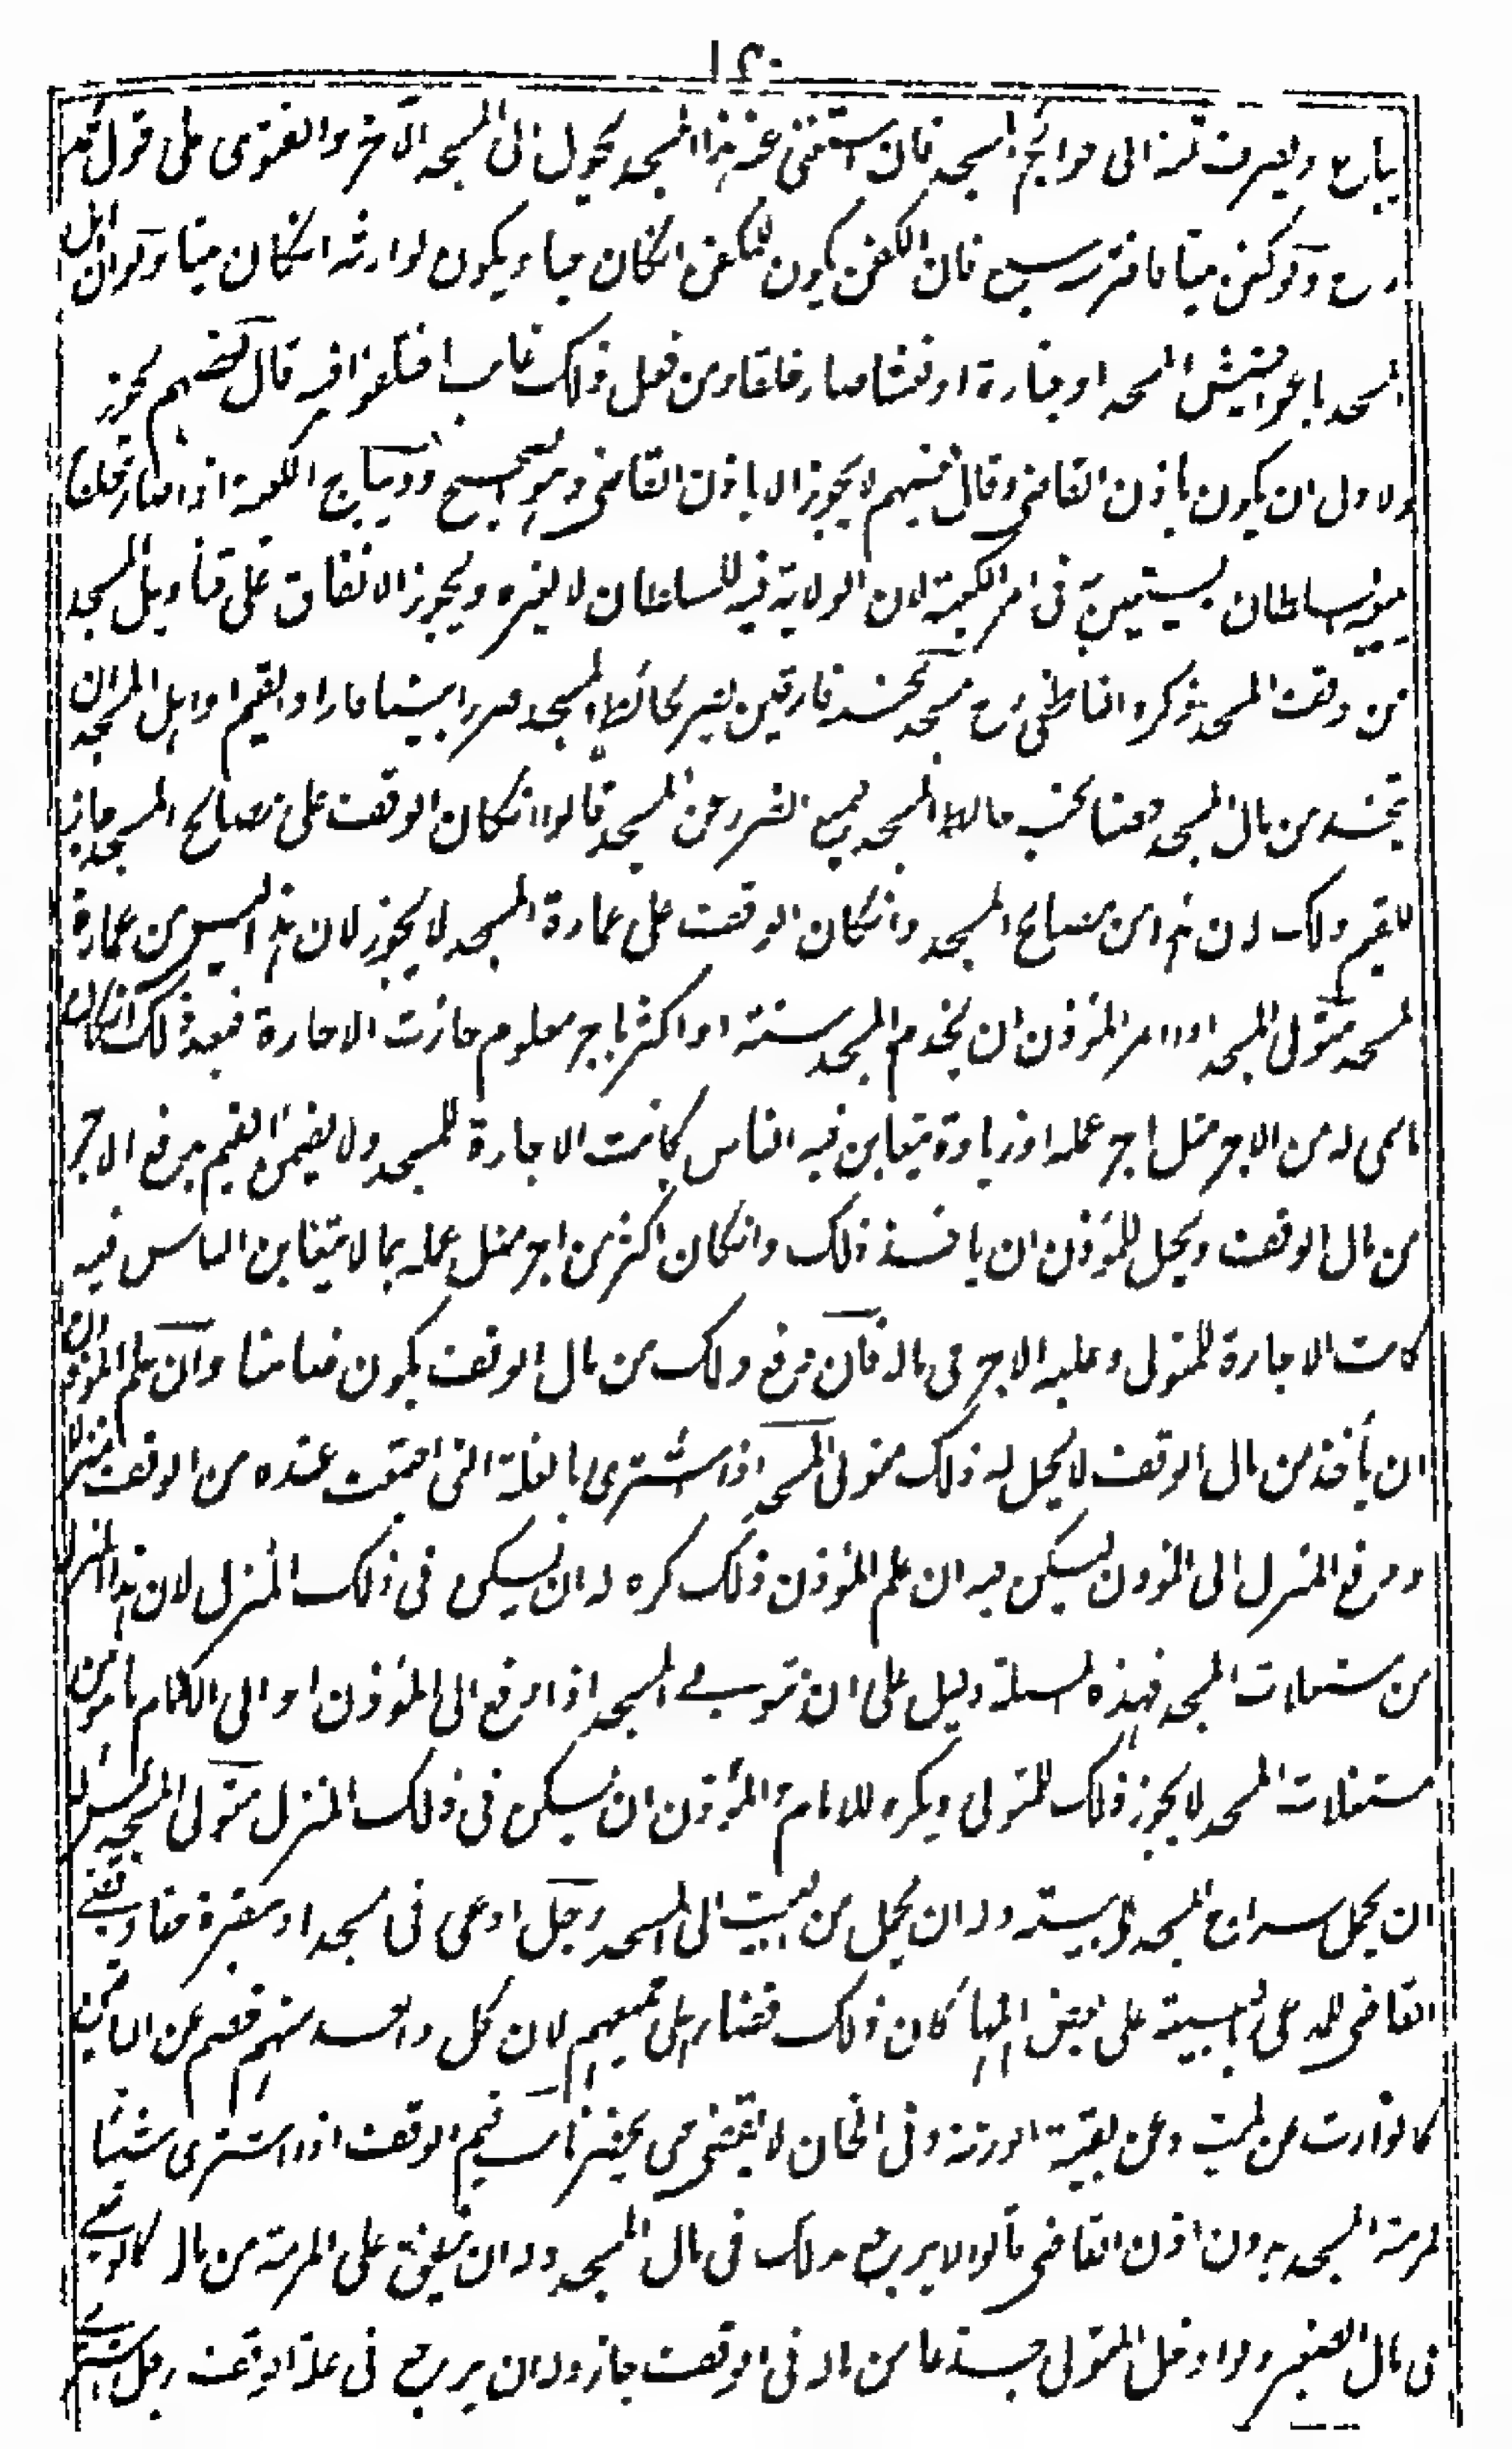 ١٢٠
يباع ويصرف ثمنه الى حوائج المسجد فان استغنى عنه هذا المسجد يحول الى المسجد الآخر والفتوى على قول محمد
رح ولو كفن ميتا فافترسه سبع فان الكفن يكون للمكفن انكان حيا ويكون لوارثه انكان ميتا ولو ان اهل
المسجد باعوا حشيش المسجد او جنازة او نعشا صار خلقا ومن فعل ذلك غاب اختلفوا فيه قال بعضهم يجوز
والاولى ان يكون باذن القاضى وقال بعضهم لا يجوز الا باذن القاضى وهو الصحيح وديباج الكعبة اذا صار خلقا
يبيعه السلطان يستعين به فى امر الكعبة لان الولاية فيه للسلطان لا لغيره ويجوز الانفاق على قناديل المسجد
من وقف المسجد ذكره الناطفى رح مسجد بجنبه فارقين يضر بحائط المسجد ضررا بينا فاراد القيم او اهل المسجد ان
يتخذ من مال المسجد حصنا بجنب حائط المسجد ليمنع الضرر عن المسجد قالوا انكان الوقف على مصالح المسجد جاز
للقيم ذلك لان هذا من مصالح المسجد وانكان الوقف على عمارة المسجد لا يجوز لان هذا ليس من عمارة
المسجد متولى المسجد اذا امر المؤذن ان يخدم المسجد سنة او اكثر باجر معلوم جازت الاجارة فبعد ذلك انكان
ما سمى له من الاجر مثل اجر عمله او زيادة يتغابن فيه الناس كانت الاجارة للمسجد ولا يضمن القيم بدفع الاجر
من مال الوقف ويحل للمؤذن ان ياخذ ذلك وانكان اكثر من اجر مثل عمله بما لا يتغابن الناس فيه
كانت الاجارة للمتولى وعليه الاجر فى ماله فان دفع ذلك من مال الوقف يكون ضامنا وان علم المؤذن
ان ياخذ من مال الوقف لا يحل له ذلك متولى المسجد اذا اشترى بالغلة التى اجتمعت عنده من الوقف منزلا
ودفع المنزل الى المؤذن ليسكن فيه ان علم المؤذن ذلك كره له ان يسكن فى ذلك المنزل لان هذا المنزل
من مستغلات المسجد فهذه المسئلة دليل على ان متولى المسجد اذا دفع الى المؤذن او الى الامام ما هو من
مستغلات المسجد لا يجوز ذلك للمتولى ويكره للامام والمؤذن ان يسكن فى ذلك المنزل متولى المسجد ليس له
ان يحمل سراج المسجد الى بيته وله ان يحمل من البيت الى المسجد رجل ادعى فى مسجد او مقبرة حقا وقضى
القاضى للمدعى بالبينة على بعض اهلها كان ذلك قضاء على جميعهم لان كل واحد منهم خصم عن الباقين
كالوارث عن الميت وعن بقية الورثة وفى الخان لا يقضى حتى يحضر نائب قيم الوقف اذا اشترى شيئا
لمرمة المسجد بدون اذن القاضى قالوا لا يرجع بذلك فى مال المسجد وله ان ينفق على المرمة من ماله كالوصى
فى مال الصغير ولو ادخل المتولى جذعا من ماله فى الوقف جاز وله ان يرجع فى غلة الوقف رجل اشترى